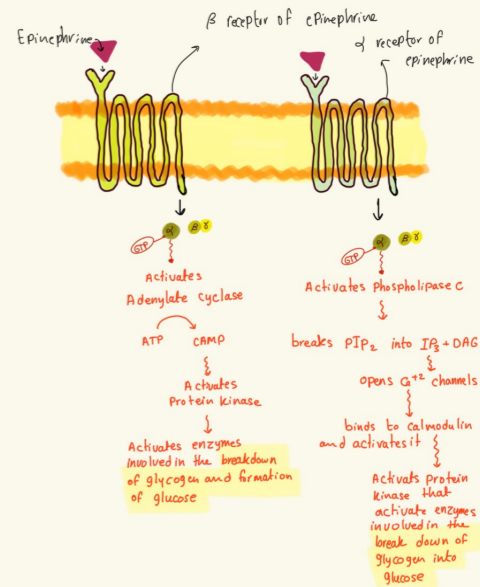 Epinephrine
β receptor of epinephrine
α receptor of
epinephrine
GTP α β γ
Activates
Adenylate cyclase
ATP CAMP
Activates
Protein kinase
Activates enzymes
involved in the breakdown
of glycogen and formation
of glucose
GTP α β γ
Activates Phospholipase C
breaks PIP₂ into IP₃ + DAG
opens Ca⁺² channels
binds to calmodulin
and activates it
Activats protein
kinase that
activate enzymes
involved in the
break down of
glycogen into
glucose